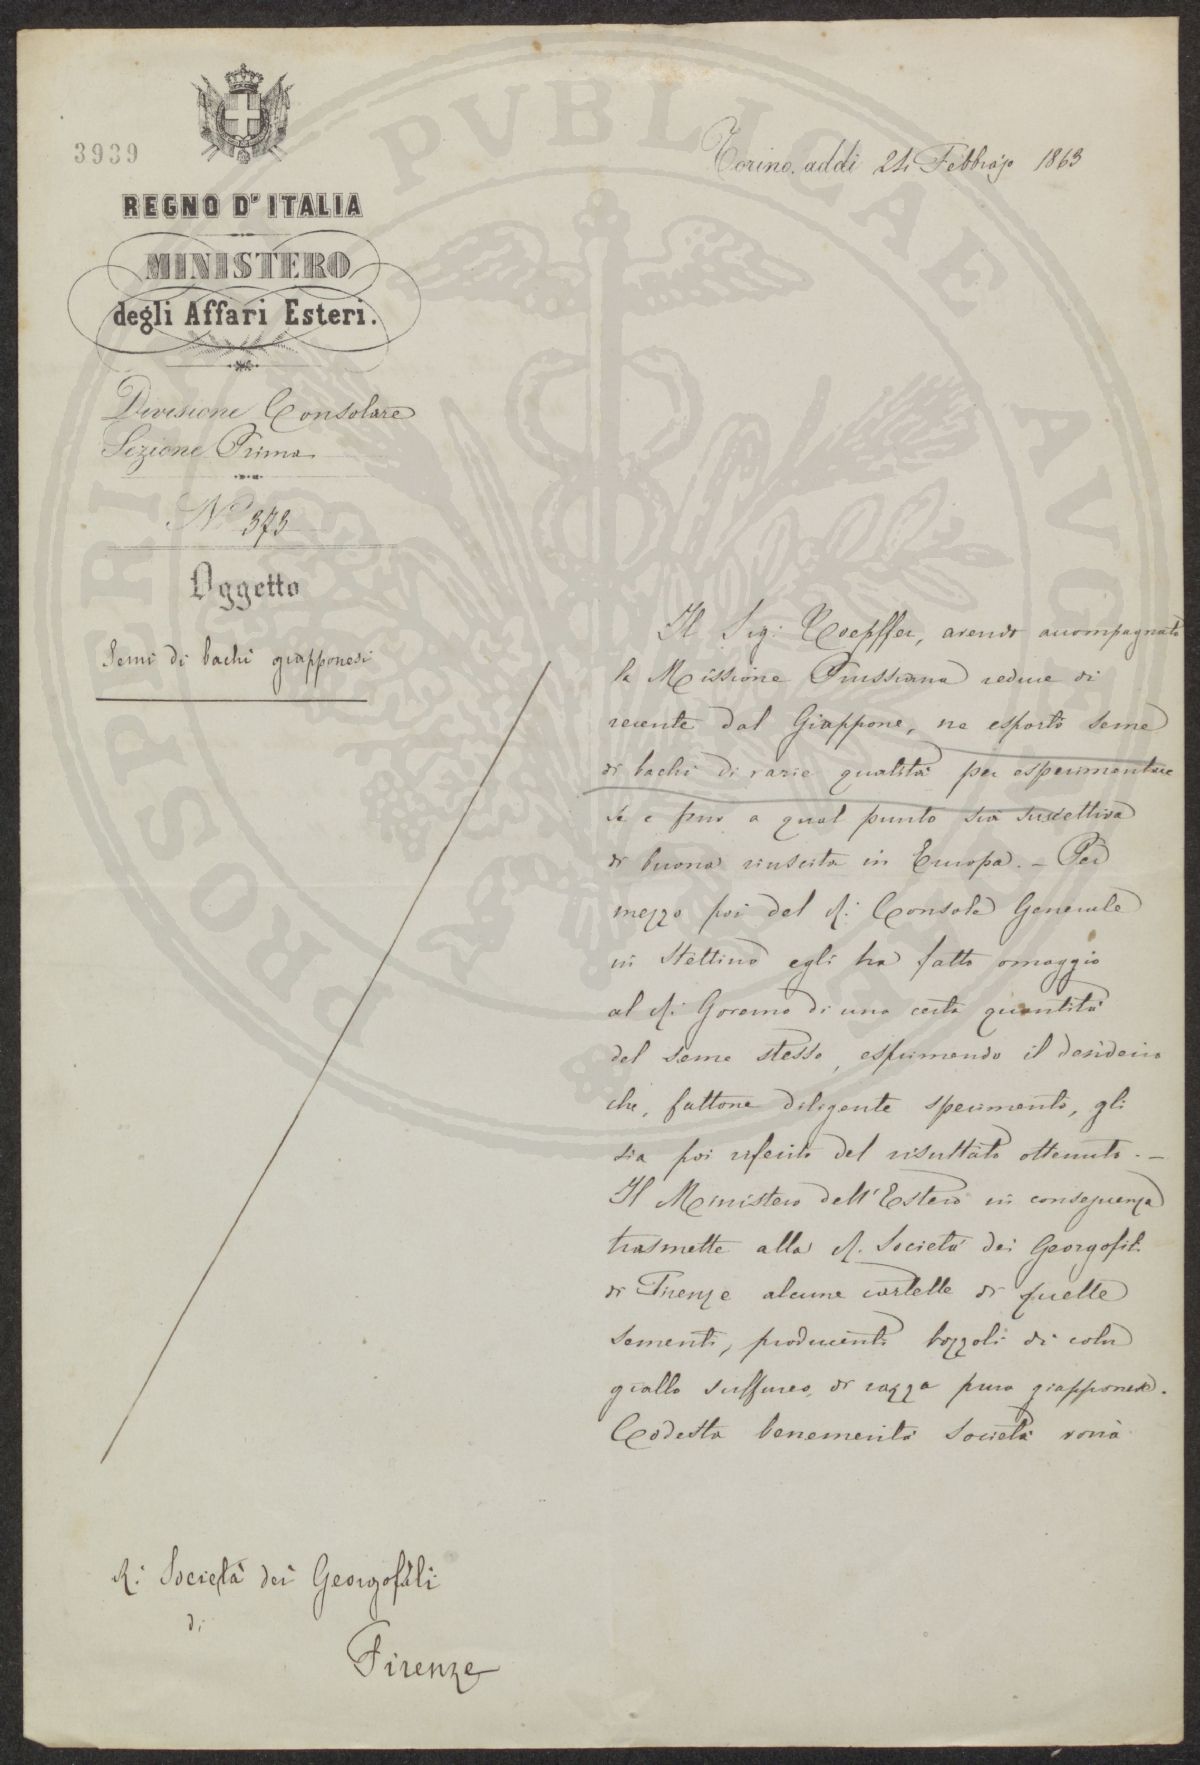 3939
Torino, addì 24 Febbrajo 1863
REGNO D'ITALIA
MINISTERO
degli Affari Esteri.
Divisione Consolare
Sezione Prima
N.° 373
Oggetto
Semi di bachi giapponesi
Il Sig: avendo accompagnato
la Missione Prussiana reduce di
recente dal Giappone, ne esportò seme
di bachi di varie qualità per esperimentare
se e fino a qual punto sia suscettiva
di buona riuscita in Europa. - Per
mezzo poi del R: Console Generale
in Stettino egli ha fatto omaggio
al R: Governo di una certa quantità
del seme stesso, esprimendo il desiderio
che, fattone diligente sperimento, gli
sia poi riferito del risultato ottenuto. -
Il Ministero dell'Estero in conseguenza
trasmette alla R. Società dei Georgofili
di Firenze alcune cartelle di quelle
sementi, producenti bozzoli di color
giallo sulfureo, di razza pura giapponese.
Codesta benemerita Società vorrà
R: Società dei Georgofili
di
Firenze
PROSPERITATI PVBLICAE AVGENDAE